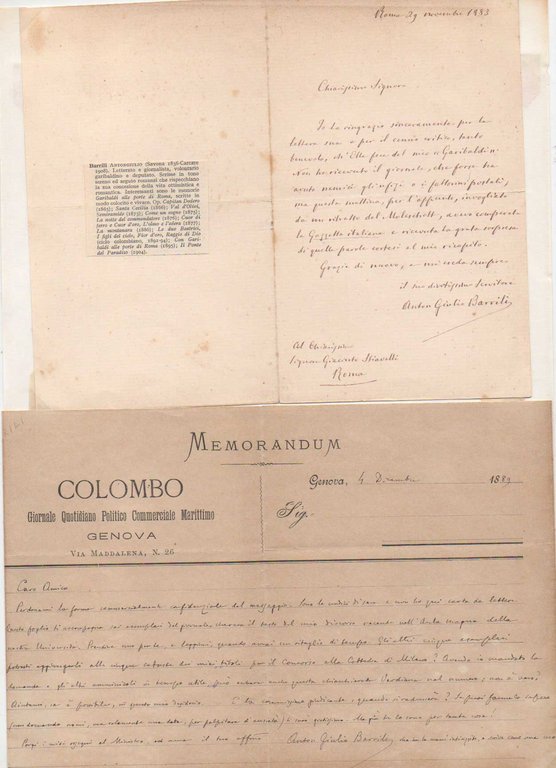 Roma 29 novembre 1893
Chiarissimo Signore
Io La ringrazio sinceramente per la
lettera sua e per il cenno critico, tanto
benevolo, ch'Ella fece del mio "Garibaldi".
Non ho ricevuto il giornale, che forse
avuto uffizi o i fattorini postali,
ma questa mattina, per l'appunto, invogliato
da un ritratto del Moleschott, avevo comperato
la Gazzetta italiana e ricevuta la grata sorpresa
di quelle parole cortesi al mio
Grazie di nuovo, e mi creda sempre
il suo devotissimo servitore
Anton Giulio Barrili
Al Chiarissimo
Signor Giacinto Stiavelli
Roma
Barrili ANTONGIULIO (Savona 1836-Carcare
1908). Letterato e giornalista, volontario
garibaldino e deputato. Scrisse in tono
sereno ed arguto romanzi che rispecchiano
la sua concezione della vita ottimistica e
romantica. Interessanti sono le memorie
Garibaldi alle porte di Roma, scritte in
modo colorito e vivace. Op. Capitan Dodero
(1865); Santa Cecilia (1866); Val d'Olivi,
Semiramide (1873); Come un sogno (1875);
La notte del commendatore (1876); Cuor di
ferro e Cuor d'oro, L'olmo e l'edera (1877);
La montanara (1886); Le due Beatrici,
I figli del cielo, Fior d'oro, Raggio di Dio
(ciclo colombiano, 1892-94); Con Garibaldi
alle porte di Roma (1895); Il Ponte
del Paradiso (1904).
MEMORANDUM
COLOMBO
Giornale Quotidiano Politico Commerciale Marittimo
GENOVA
VIA MADDALENA, N. 26
Genova, 4 Dicembre 1889
Sig.
Caro Amico
Perdonami la forma commercialmente confidenziale del messaggio. Sono le undici di sera e non ho qui carta da lettere.
Questo foglio ti accompagna sei esemplari del giornale, dov'è il testo del mio discorso recente nell'Aula magna della
nostra Università. Prendine uno per te, e leggimi, quando avrai un ritaglio di tempo. Gli altri cinque esemplari
potresti aggiungerli alle cinque dei miei titoli per il Concorso alla Cattedra di Milano? Avendo io mandato la
domanda e gli altri in tempo utile, può entrare anche questa nel numero; non è vero?
Aiutami, se è possibile, in questo mio desiderio. E la commissione giudicante, quando si radunerà?
Porgi i miei ossequi al Ministro, ed ama il tuo affmo Anton Giulio Barrili